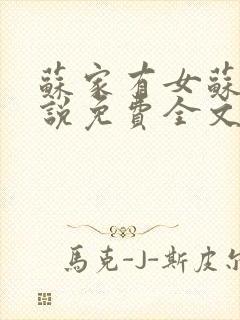 蘇家有女蘇
說免費全文
馬克-J-斯皮尔